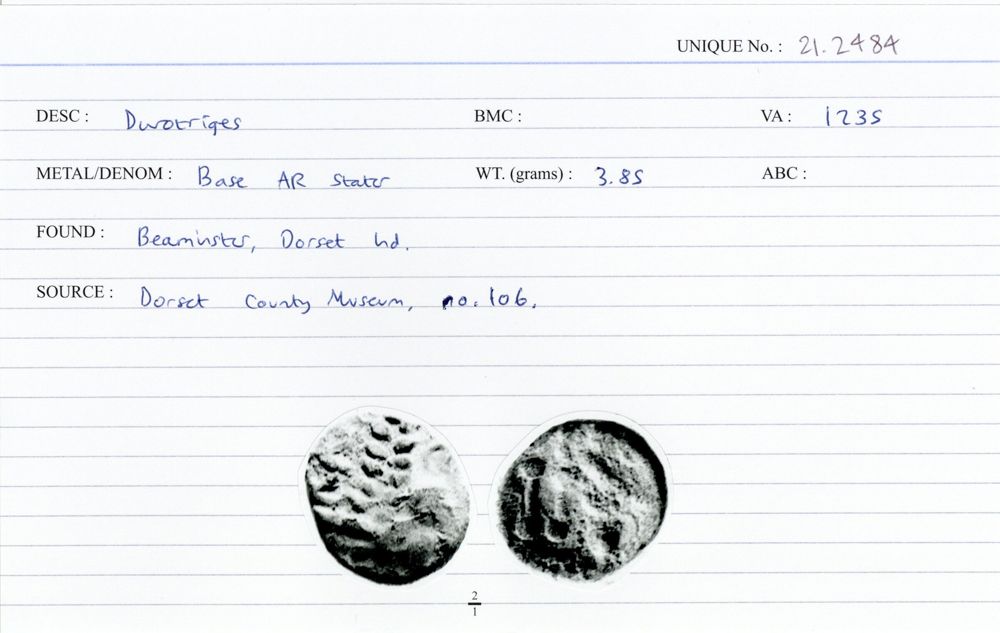 UNIQUE No. : 21.2484
DESC : Durotriges BMC : VA : 1235
METAL/DENOM : Base AR Stater WT. (grams) : 3.85 ABC :
FOUND : Beaminster, Dorset hd.
SOURCE : Dorset County Museum, no. 106.
2
1